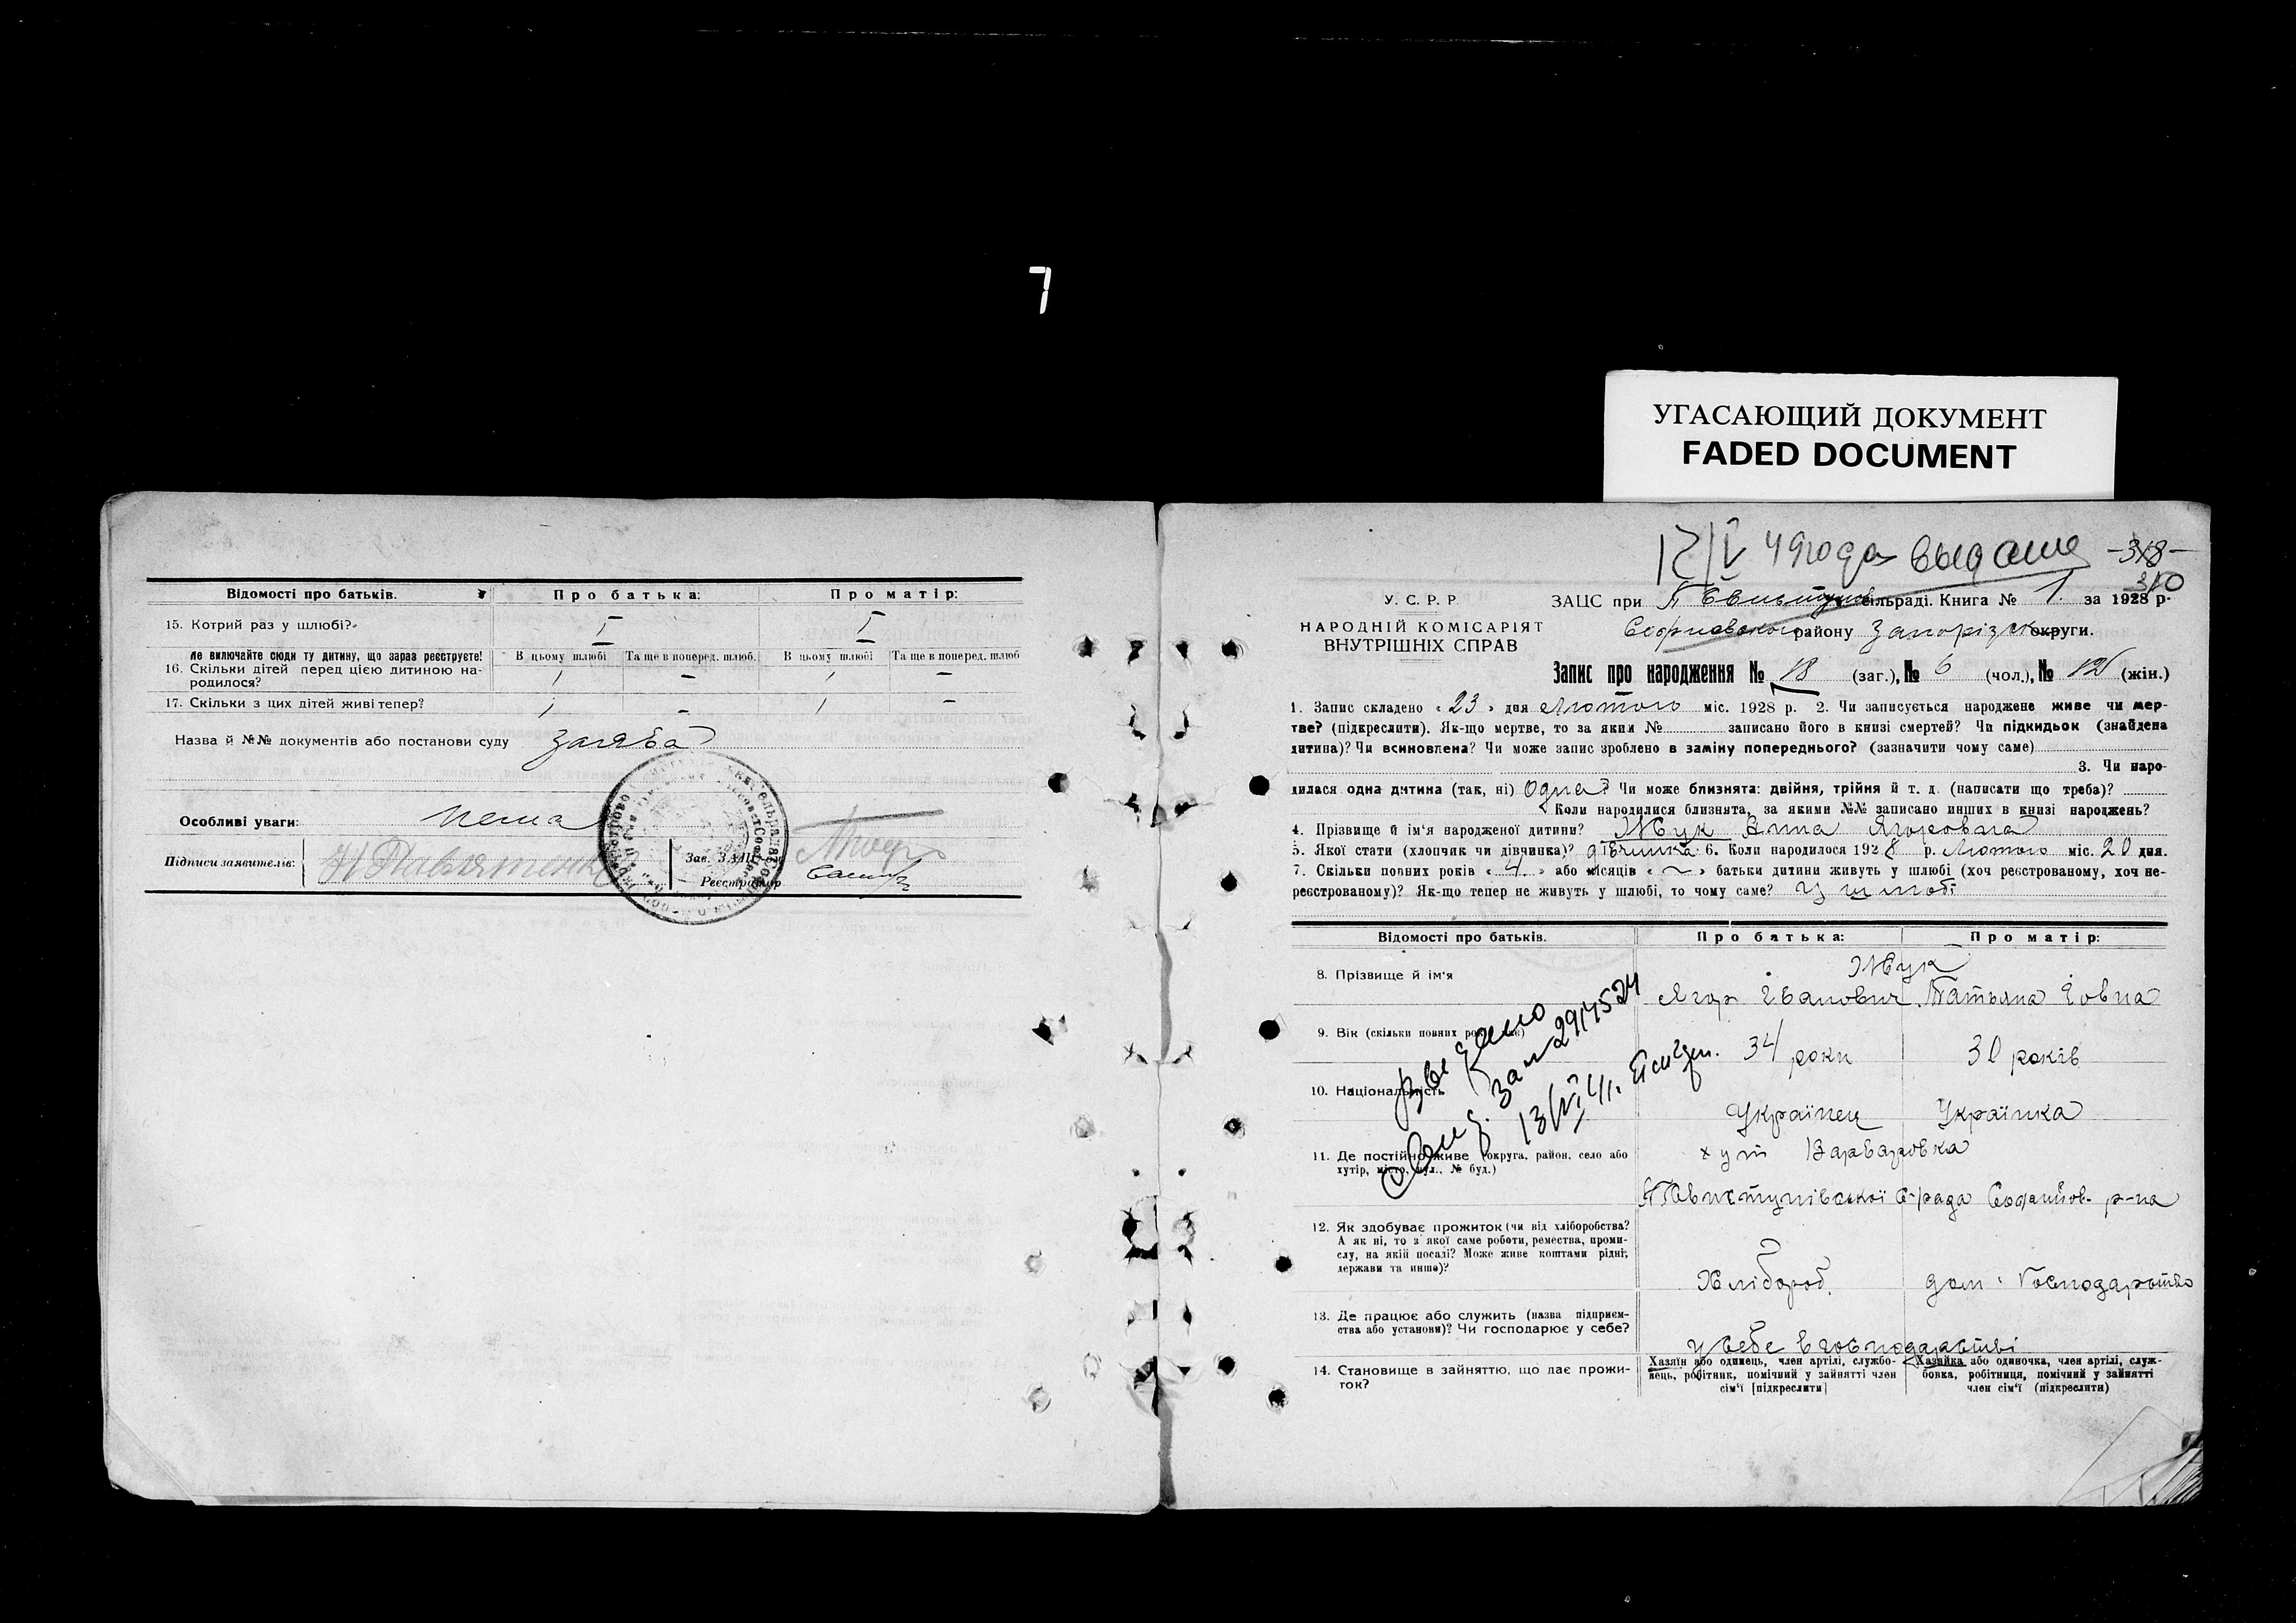 7
УГАСАЮЩИЙ ДОКУМЕНТ
FADED DOCUMENT
Відомості про батьків. Про батька: Про матір:
15. Котрий раз у шлюбі? I I
Не включайте сюди ту дитину, що зараз реєструєте! В цьому шлюбі Та ще в поперед. шлюб. В цьому шлюбі Та ще в поперед. шлюб
16. Скільки дітей перед цією дитиною на-
родилося? 1 – 1 –
17. Скільки з цих дітей живі тепер? 1 – 1 –
Назва й №№ документів або постанови суду заява
Особливі уваги: нема
Підписи заявителів: Зав. ЗАЦС'ом
Реєстратор
49 года -318-
310
У. С. Р. Р. ЗАЦС при сільраді. Книга № 1. за 1928 р.
НАРОДНІЙ КОМІСАРІЯТ району Запорізськ округи.
ВНУТРІШНІХ СПРАВ
Запис про народження № 18 (заг.), № 6 (чол.), № 12 (жін.)
1. Запис складено « 23 » дня Лютого міс. 1928 р. 2. Чи записується народжене живе чи мер-
тве? (підкреслити). Як-що мертве, то за яким № записано його в книзі смертей? Чи підкидьок (знайдена
дитина)? Чи всиновлена? Чи може запис зроблено в заміну попереднього? (зазначити чому саме)
3. Чи наро-
дилася одна дитина (так, ні) Одна? Чи може близнята: двійня, трійня й т. д. (написати що треба)?
Коли народилися близнята, за якими №№ записано инших в книзі народжень?
4. Прізвище й ім'я народженої дитини? Жук Анна Ягоровна
5. Якої стати (хлопчяк чи дівчинка)? дівчинка 6. Коли народилося 1928 р. Лютого міс. 20 дня.
7. Скільки повних років « 4 » або місяців « ~ » батьки дитини живуть у шлюбі (хоч реєстрованому, хоч не-
реєстрованому)? Як-що тепер не живуть у шлюбі, то чому саме? У шлюбі
Відомості про батьків. Про батька: Про матір:
8. Прізвище й ім'я Жук
Ягор Іванович Татьяна Іовна
9. Вік (скільки повних років має) 34 роки 30 років
10. Національність Українец Українка
11. Де постійно живе (округа, район, село або хут Варваровка
хутір, місто, вул., № буд.)
12. Як здобуває прожиток (чи від хліборобства?
А як ні, то з якої саме роботи, ремества, проми-
слу, на якій посаді? Може живе коштами рідні,
держави та инше)? Хлібороб. дом. Господарство
13. Де працює або служить (назва підприєм-
ства або установи)? Чи господарює у себе? У себе в господарстві
14. Становище в зайняттю, що дає прожи-
ток?
Хазяїн або одинець, член артілі, службо-
вець, робітник, помічний у зайнятті член
сім'ї [підкреслити]
Хазяйка або одиночка, член артілі, служ-
бовка, робітниця, помічний у зайнятті
член сім'ї (підкреслити)